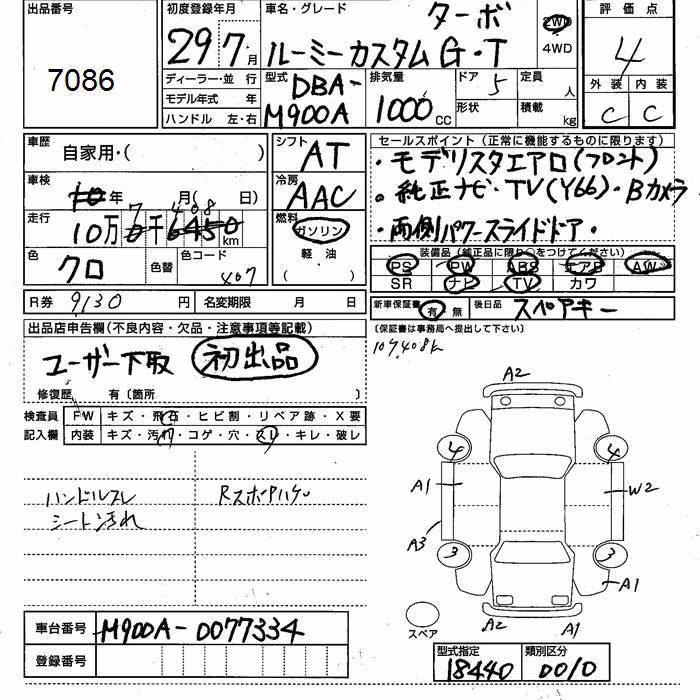 出品番号
7086
初度登録年月
29年7月
車名・グレード
ターボ
ルーミーカスタムG・T
2WD
4WD
評価点
4
外装 内装
C C
ディーラー・並行
モデル年式 年
ハンドル 左・右
型式
DBA-
M900A
排気量
1000cc
ドア 5
形状
定員 人
積載 kg
車歴
自家用・( )
車検
年 月( 日)
走行
10万 7 408 km
色
クロ
色替
色コード
シフト
AT
冷房
AAC
燃料
ガソリン
軽・油
( )
セールスポイント(正常に機能するものに限ります)
・モデリスタエアロ(フロント)
。純正ナビ・TV(Y66)・Bカメラ
・両側パワースライドドア・
装備品(純正品に限り○をつけてください)
PS PW ABS エアB AW
SR ナビ TV カワ
R券 9130円
名変期限 月 日
新車保証書 有・無
後日品 スペアキー
(保証書は事務局へ提出して下さい)
107,408k
出品店申告欄(不良内容・欠品・注意事項等記載)
ユーザー下取 初出品
修復歴 有〔箇所 〕
検査員 FW キズ・飛石・ヒビ割・リペア跡・X要
記入欄 内装 キズ・汚れ・コゲ・穴・スレ・キレ・破れ
ハンドルスレ
シート汚れ
A2
4 4
A1 W2
A3
3 3
A1
A2 A1
スペア
車台番号 M900A-0077334
登録番号
型式指定 類別区分
18440 0010